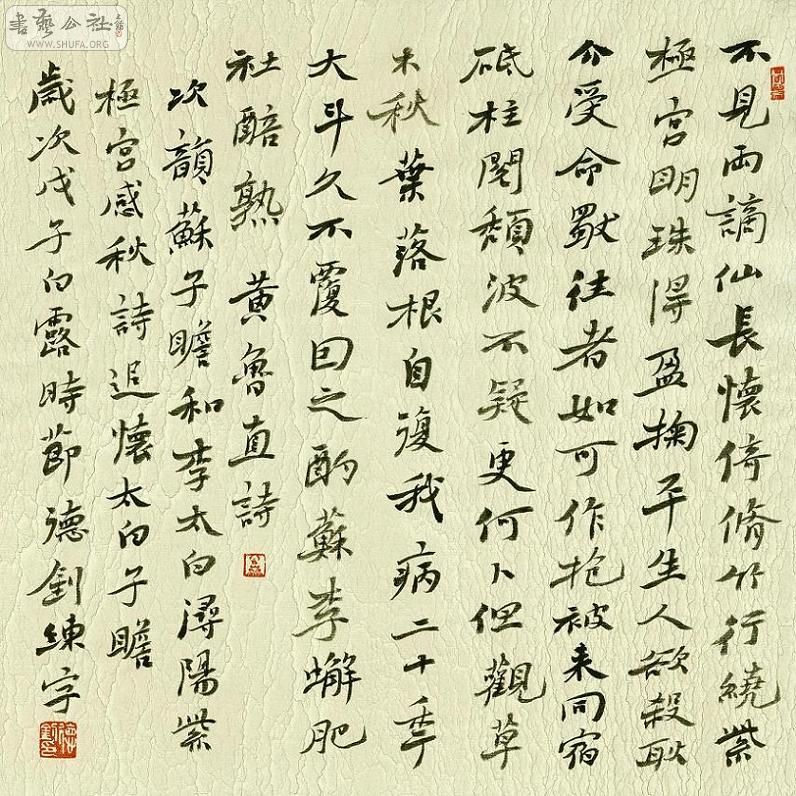 不見兩謫仙長懷倚脩竹行繞紫
極宮明珠得盈掬平生人欲殺耿
介受命獨往者如可作抱被来同宿
砥柱閱頹波不疑更何卜但觀草
木秋葉落根自復我病二十年
大斗久不覆因之酌蘇李蠏肥
社醅熟 黃魯直詩
次韻蘇子瞻和李太白潯陽紫
極宮感秋詩追懷太白子瞻
歲次戊子白露時節德釗練字
書藝公社
WWW.SHUFA.ORG